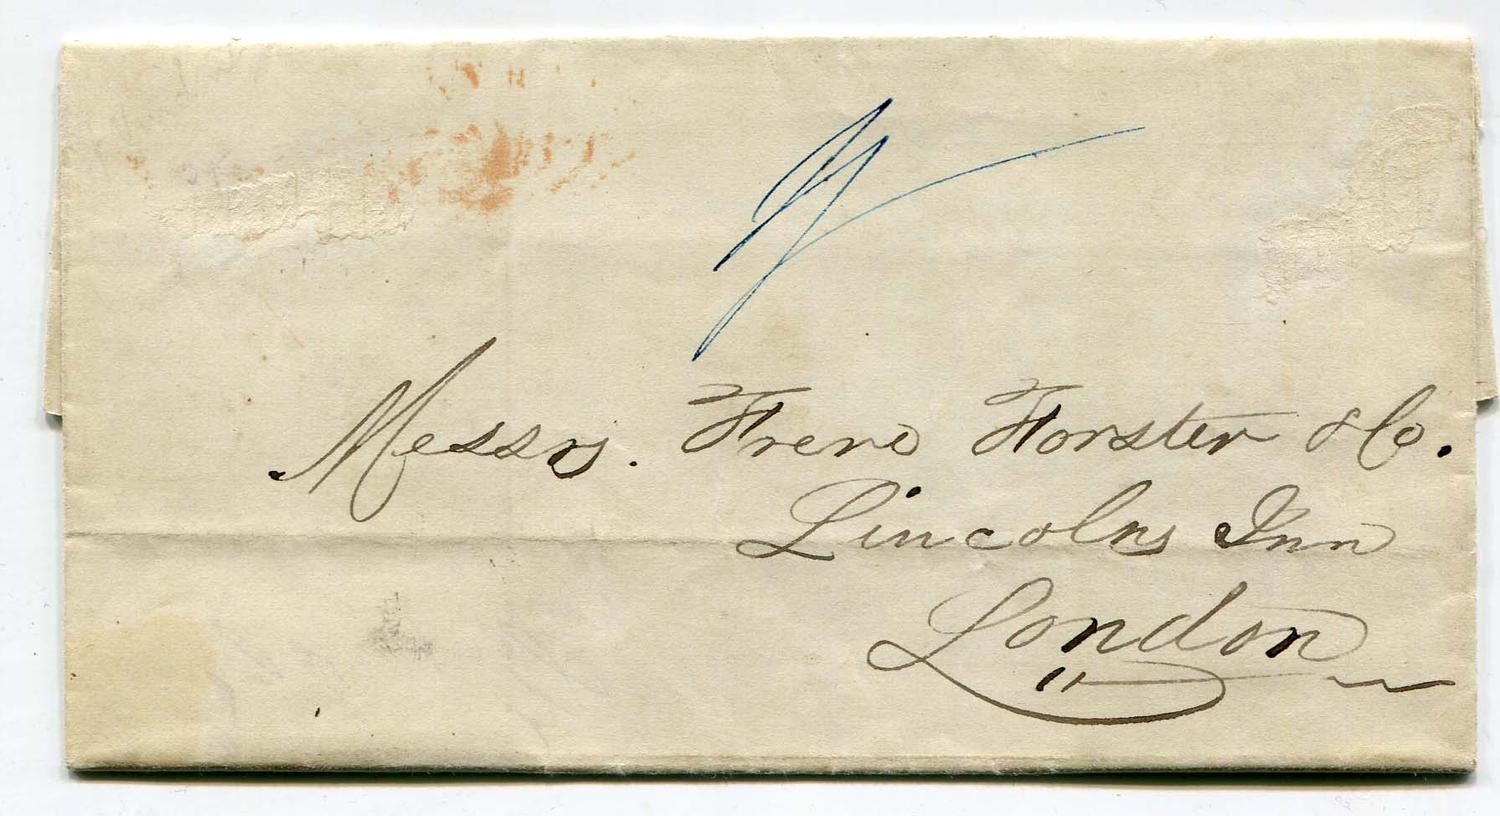 Messrs. Frere Forster & Co.
Lincolns Inn
London